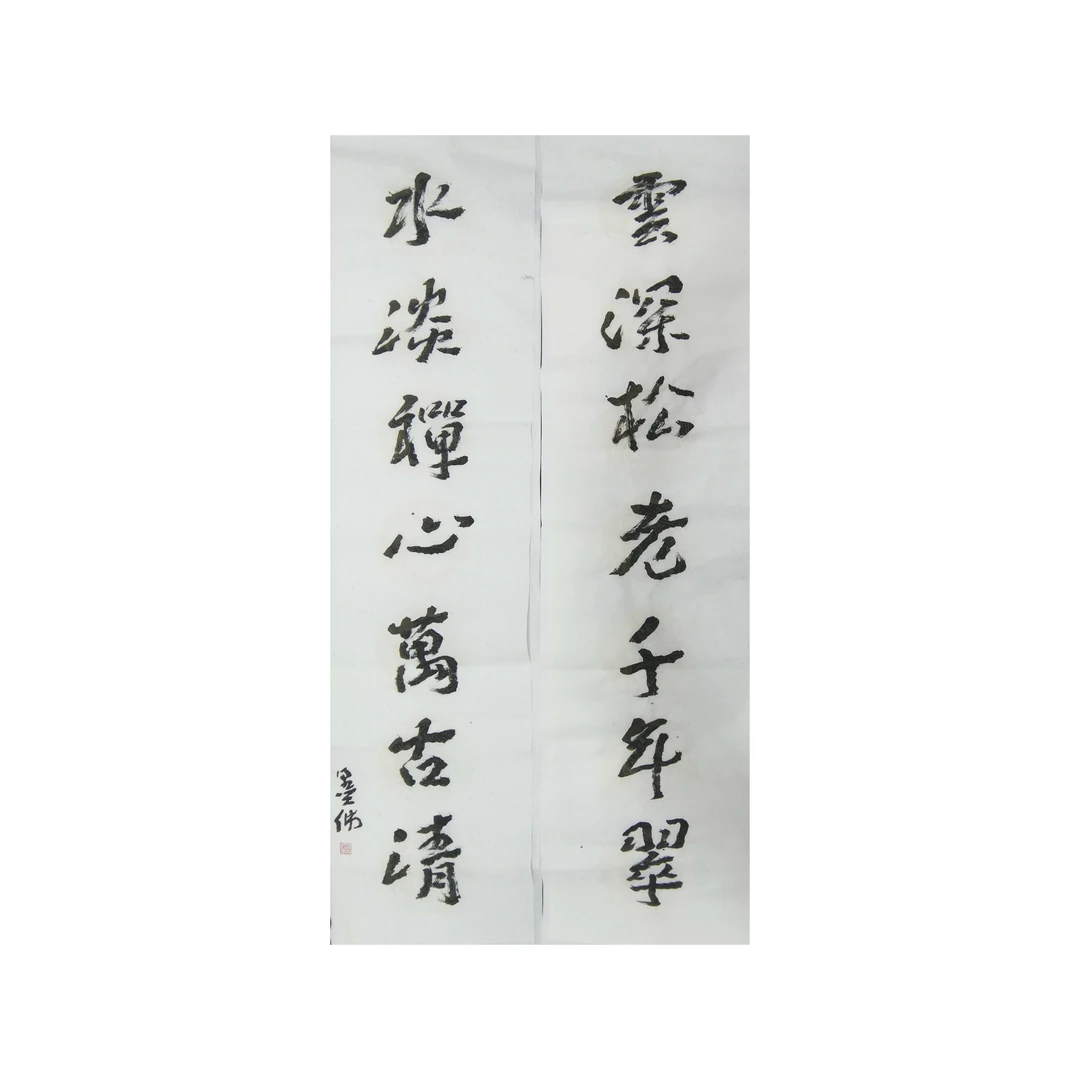 雲深松老千年翠
水淡禪心萬古清
墨佛